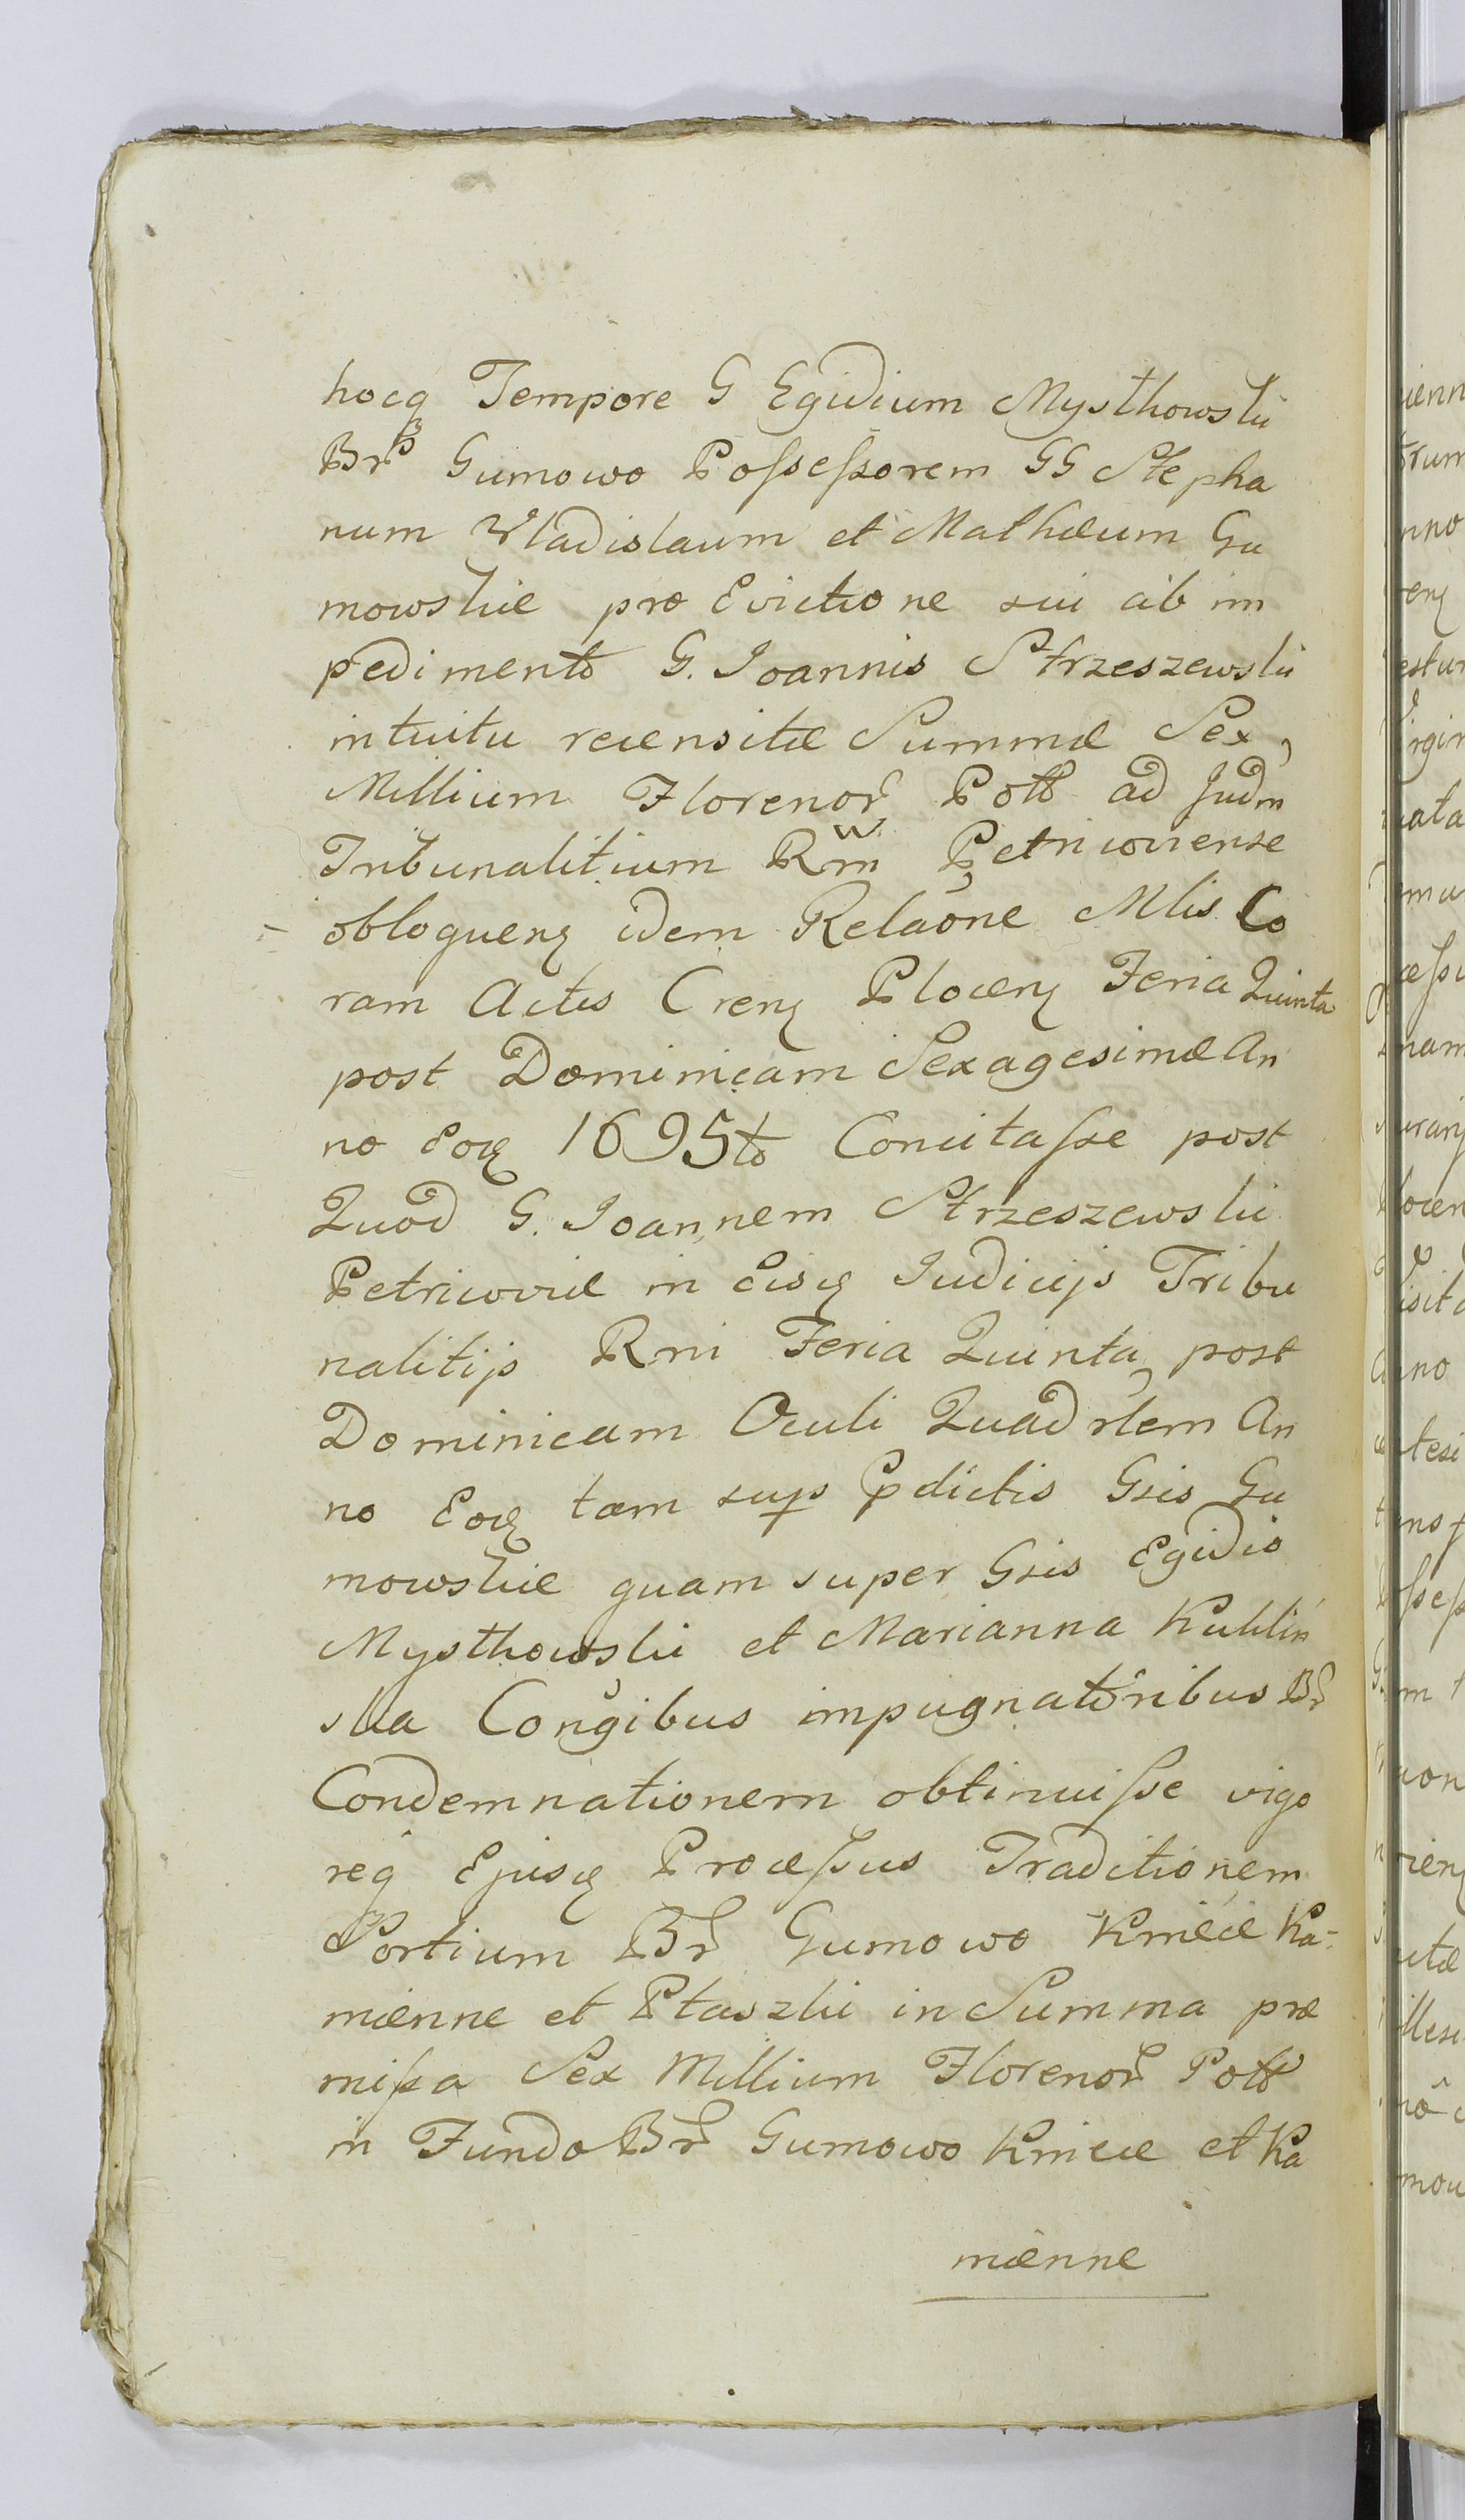 hocq Tempore G Egidium Mysthowski
Br Gumowo Possessorem GG Stepha
num Vladislaum et Mathæum Gu
mowskie pro Evictione sui ab im
pedimento G. Joannis Strzeszewski
intuitu recensitæ Summæ Sex
Millium Florenor Poll ad Judm
Tribunalitium Rm Petricoviense
obloquenꝫ idem Relaõne Mlis Co
ram Actis Crenꝫ Plocenꝫ Feria Quinta
post Dominicam Sexagesimæ An
no Eoꝫ 1695to Concitasse post
Quod G. Joannem Strzeszewski
Petricoviæ in Eisꝫ Judicijs Tribu
nalitijs Rni Feria Quinta post
Dominicam Oculi Quadrlem An
no Eoꝫ tam sup pdictis Gsis Gu
mowskie quam super Gsis Egidio
Mysthowski et Marianna Kuklin
ska Congibus impugnatoribus Br
Condemnationem obtinuisse vigo
req Ejusꝫ Processus Traditionem
Portium Br Gumowo Kmiecie Ka-
mienne et Ptaszki in Summa præ
missa Sex Millium Florenor Poll
in Fundo Br Gumowo Kmiecie et Ka
mienne